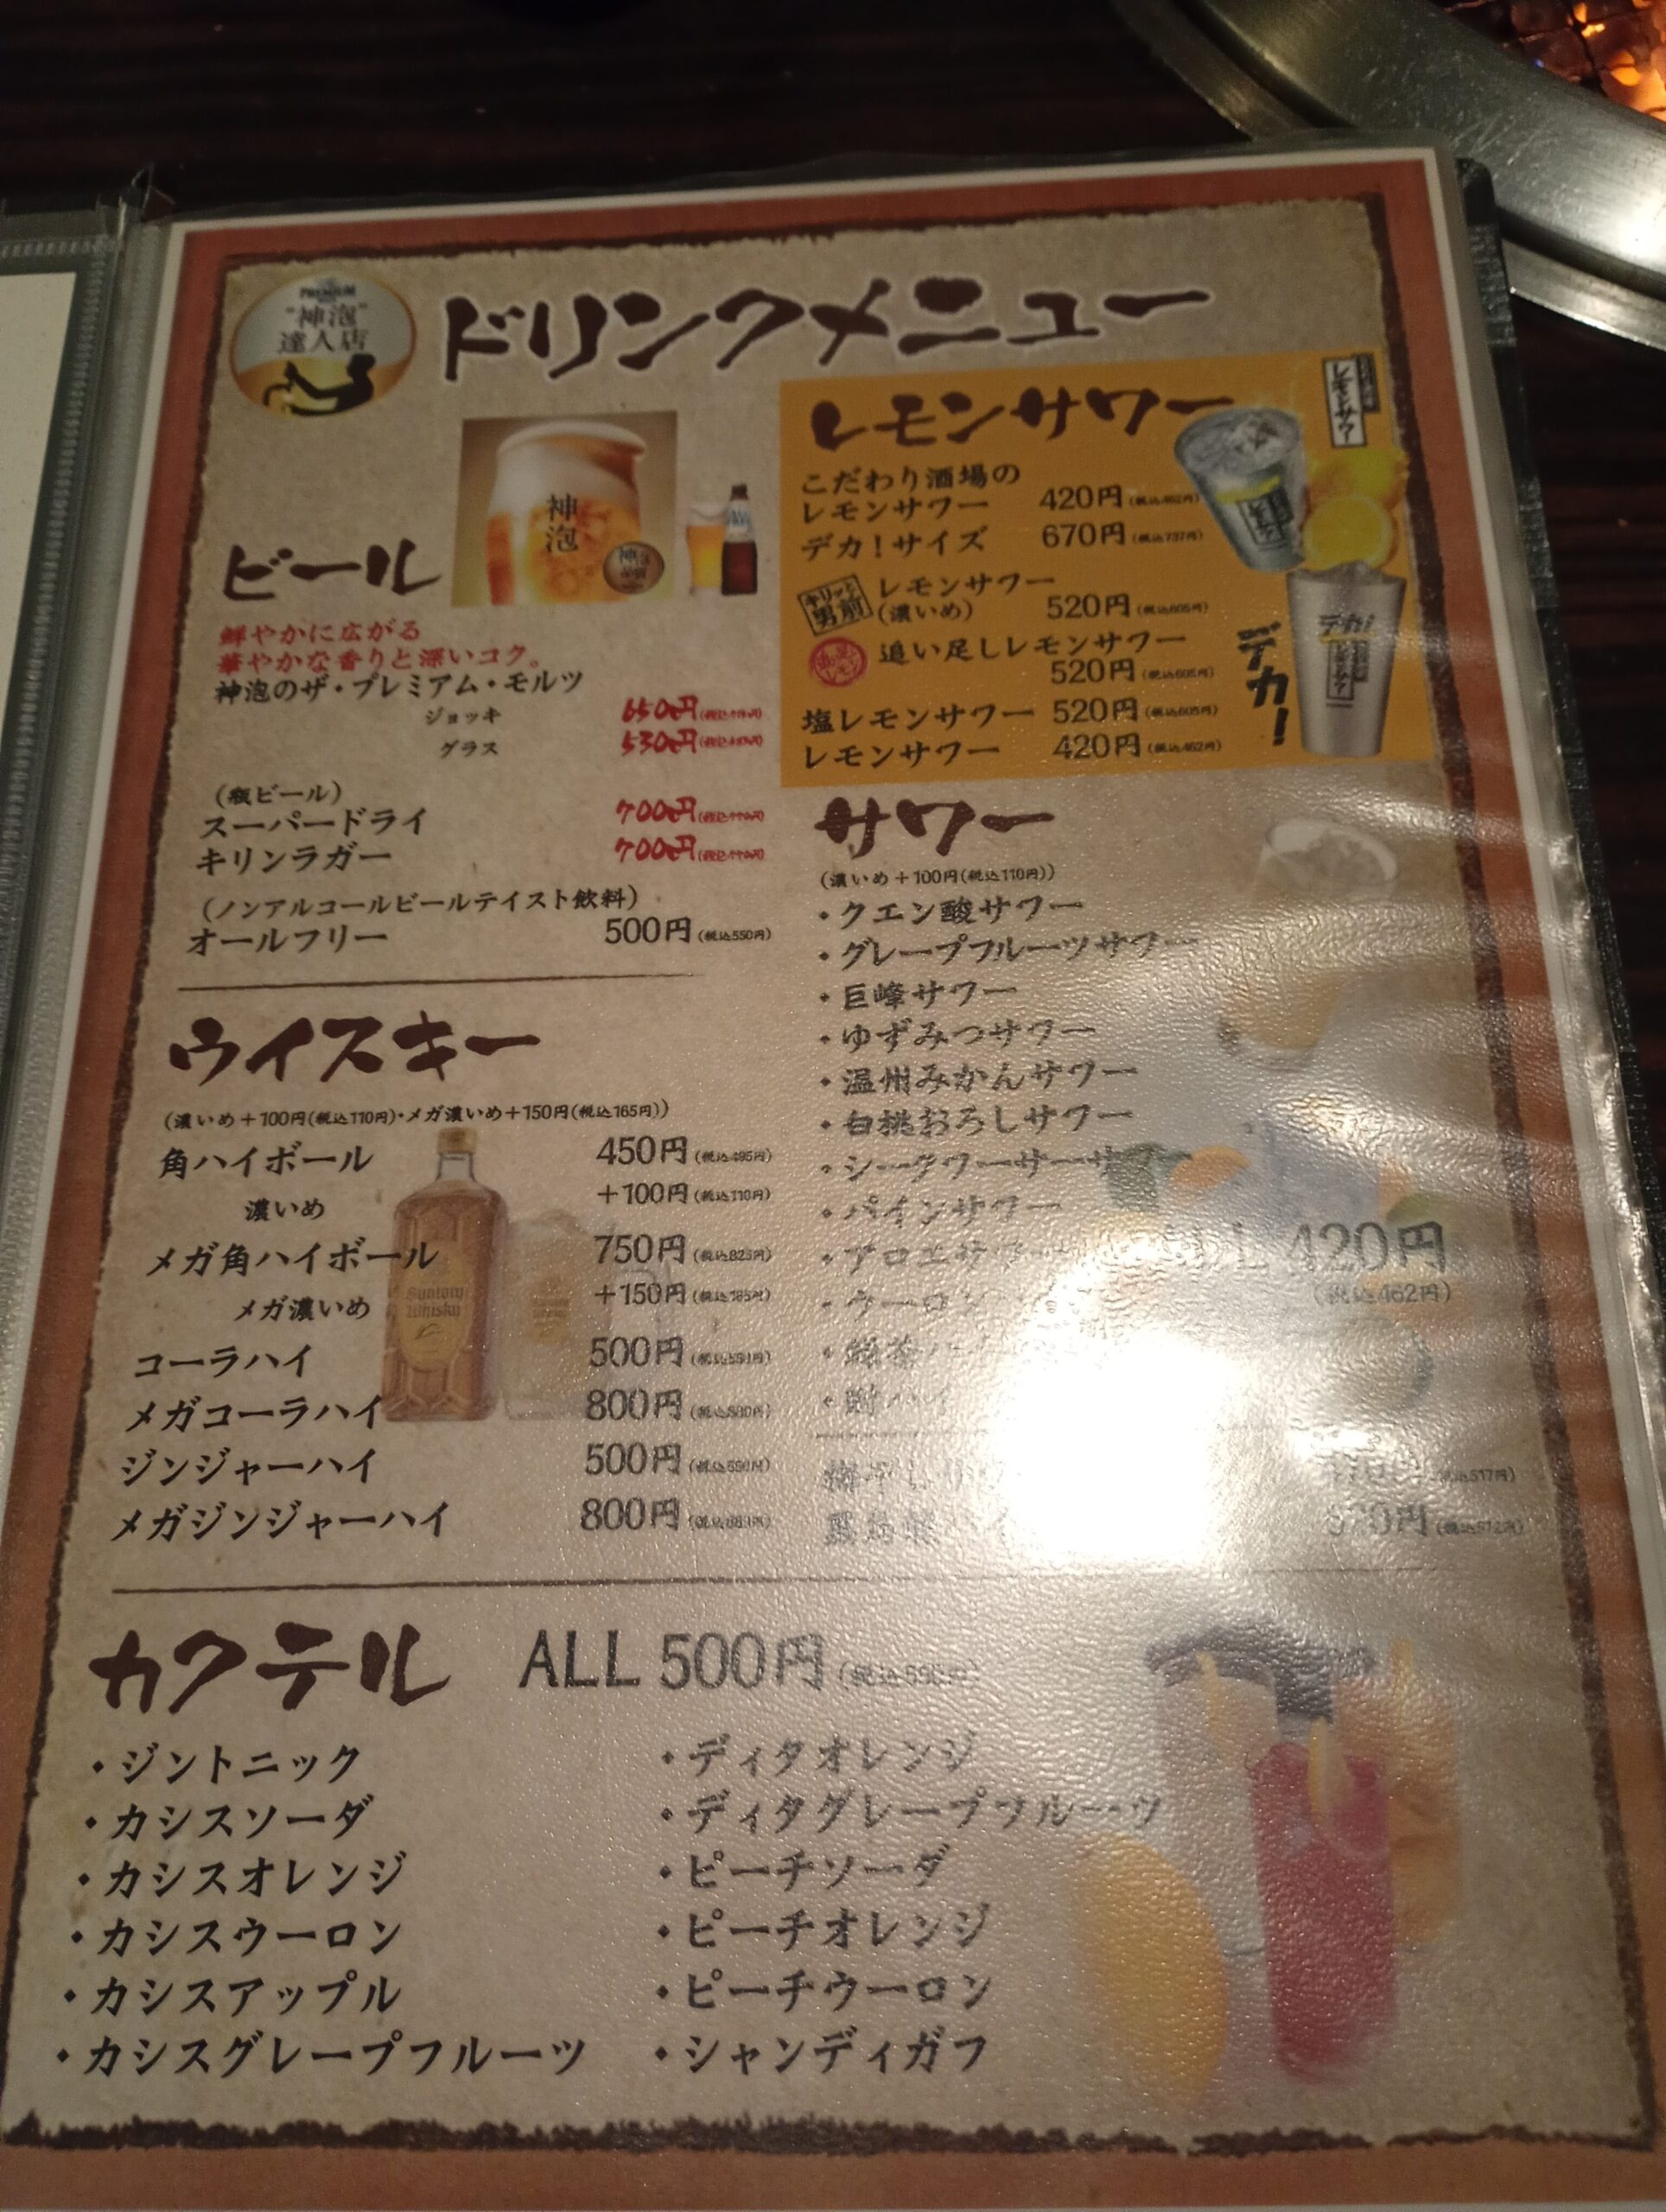 PREMIUM
"神泡"
達人店
ドリンクメニュー
神泡
ビール
鮮やかに広がる
華やかな香りと深いコク。
神泡のザ・プレミアム・モルツ
ジョッキ 650円
グラス 530円
(瓶ビール)
スーパードライ 700円
キリンラガー 700円
(ノンアルコールビールテイスト飲料)
オールフリー 500円(税込550円)
ウイスキー
(濃いめ+100円(税込110円)・メガ濃いめ+150円(税込165円))
角ハイボール 450円(税込495円)
濃いめ +100円(税込110円)
メガ角ハイボール 750円(税込825円)
メガ濃いめ +150円(税込165円)
コーラハイ 500円
メガコーラハイ 800円
ジンジャーハイ 500円
メガジンジャーハイ 800円
Suntory
Whisky
レモンサワー
レモンサワー
こだわり酒場の
レモンサワー 420円(税込462円)
デカ!サイズ 670円(税込737円)
キリッと
男前
レモンサワー
(濃いめ) 520円(税込605円)
追い足しレモンサワー
520円(税込605円)
塩レモンサワー 520円(税込605円)
レモンサワー 420円(税込462円)
デカ!
デカ!
サワー
(濃いめ+100円(税込110円))
・クエン酸サワー
・グレープフルーツサワー
・巨峰サワー
・ゆずみつサワー
・温州みかんサワー
・白桃おろしサワー
・シークワーサーサワー
・パインサワー
・アロエサワー
・ウーロン
・緑茶ハイ
・酎ハイ
ALL 420円
(税込462円)
梅干し
(税込517円)
円(税込572円)
カクテル ALL 500円
・ジントニック
・カシスソーダ
・カシスオレンジ
・カシスウーロン
・カシスアップル
・カシスグレープフルーツ
・ディタオレンジ
・ディタグレープフルーツ
・ピーチソーダ
・ピーチオレンジ
・ピーチウーロン
・シャンディガフ